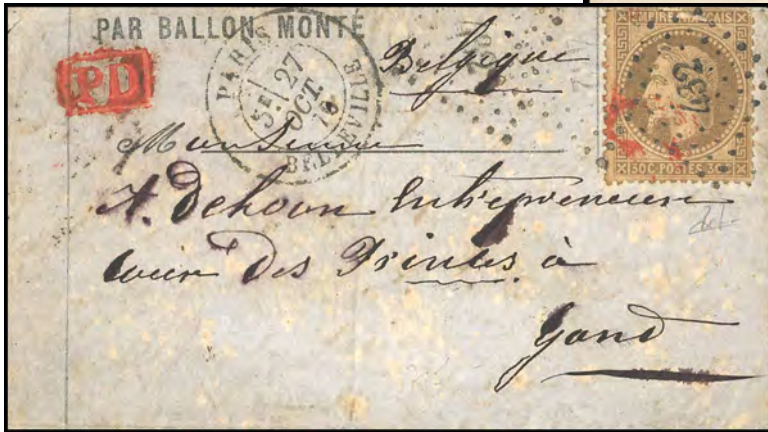 PAR BALLON MONTÉ
PD
PARIS
5E 27 OCT. 70
BELLEVILLE
EMPIRE FRANÇAIS
30C POSTES 30C
Belgique
Monsieur
A. Dehoon Entrepreneur
cour des Princes à
Gand